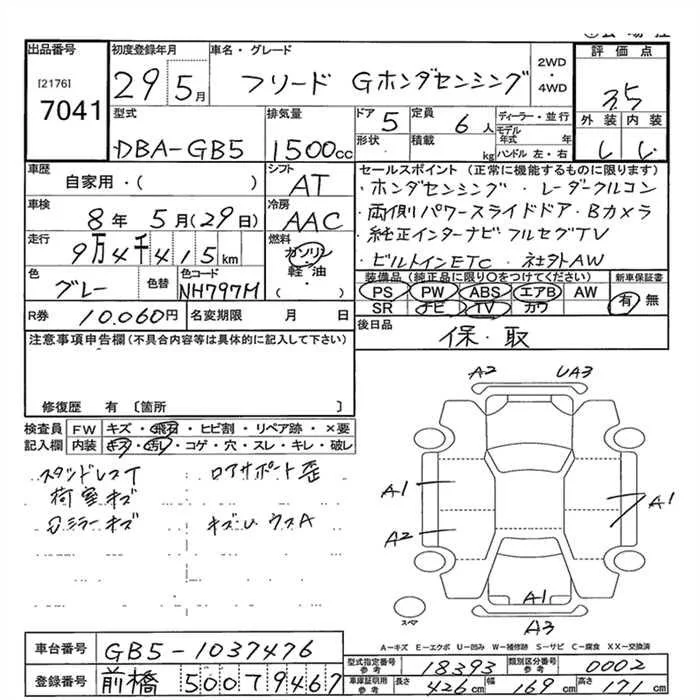 出品番号 初度登録年月 車名・グレード 2WD・4WD 評価点
[2176] 7041 29 5月 フリード Gホンダセンシング 3.5
型式 排気量 ドア 5 定員 6人 ディーラー・並行 外装 内装
DBA-GB5 1500cc 形状 積載 kg モデル年式 年 ハンドル 左・右
車歴 シフト セールスポイント (正常に機能するものに限ります)
自家用・( ) AT ・ホンダセンシング ・レーダークルコン
車検 冷房 ・両側パワースライドドア・Bカメラ
8年 5月(29日) AAC ・純正インターナビ フルセグTV
走行 燃料 ・ビルトインETC・社外AW
9万4千415km ガソリン 軽・油 ( )
色 色替 色コード 装備品 (純正品に限り○をつけてください) 新車保証書
グレー NH797M PS PW ABS エアB AW 有 無
SR ナビ TV カワ
R券 10,060円 名変期限 月 日 後日品 保・取
注意事項申告欄(不具合内容等は具体的に記入して下さい)
修復歴 有 〔箇所 〕
検査員 FW キズ・飛石・ヒビ割・リペア跡・×要
記入欄 内装 キズ・汚れ・コゲ・穴・スレ・キレ・破レ
スタッドレスT ロアサポート歪
荷室キズ
Rミラーキズ キズU ウスA
A2 UA3
A1 A1
A2
A1
スペア A3
A-キズ E-エクボ U-凹み W-補修跡 S-サビ C-腐食 XX-交換済
車台番号 GB5-1037476
登録番号 前橋 500 7 9467
型式指定番号 参考 18393 類別区分番号 参考 0002
車庫証明用 参考 長さ 426cm 幅 169cm 高さ 171cm